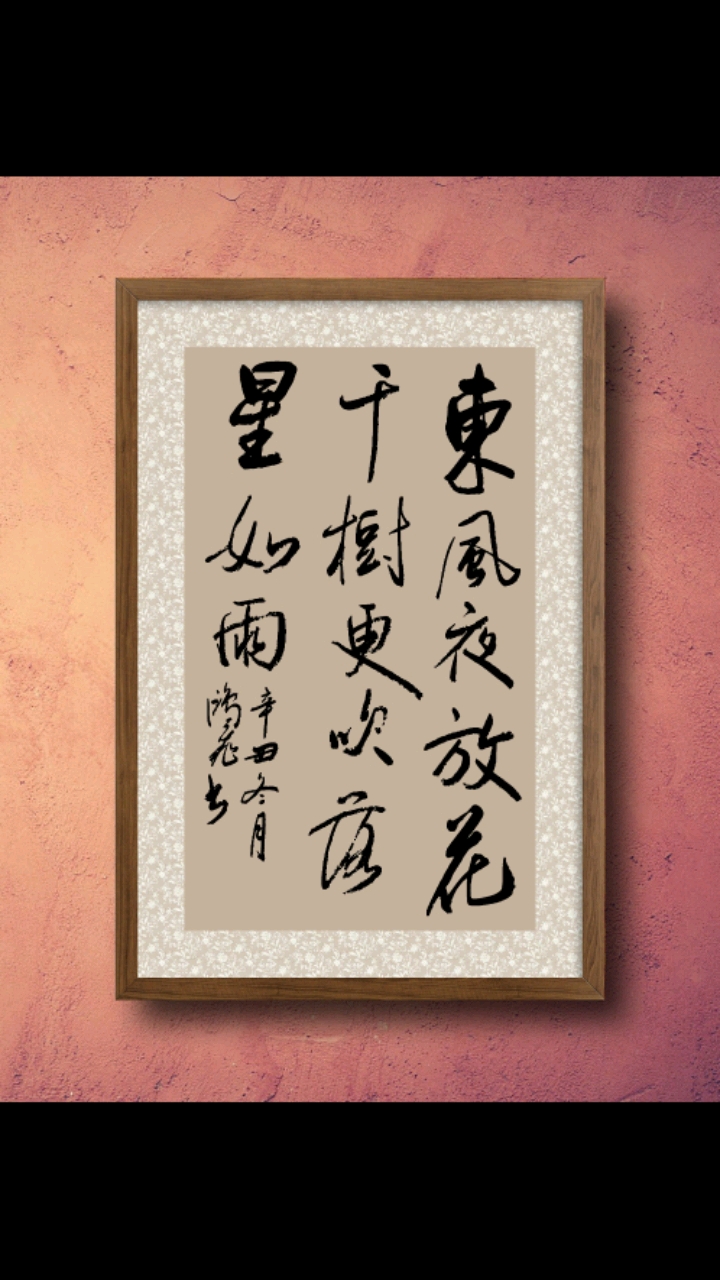 東風夜放花
千樹更吹落
星如雨
辛丑冬月
鴻飛书